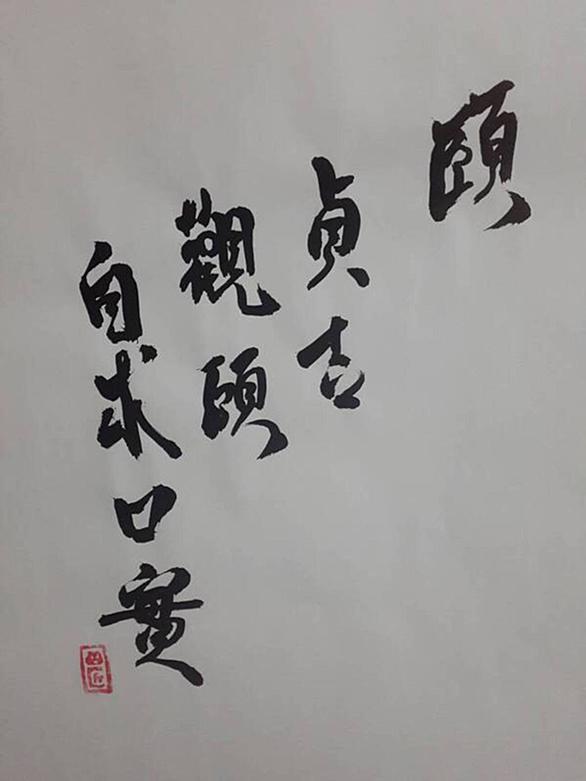 頤
貞吉
觀頤
自求口實